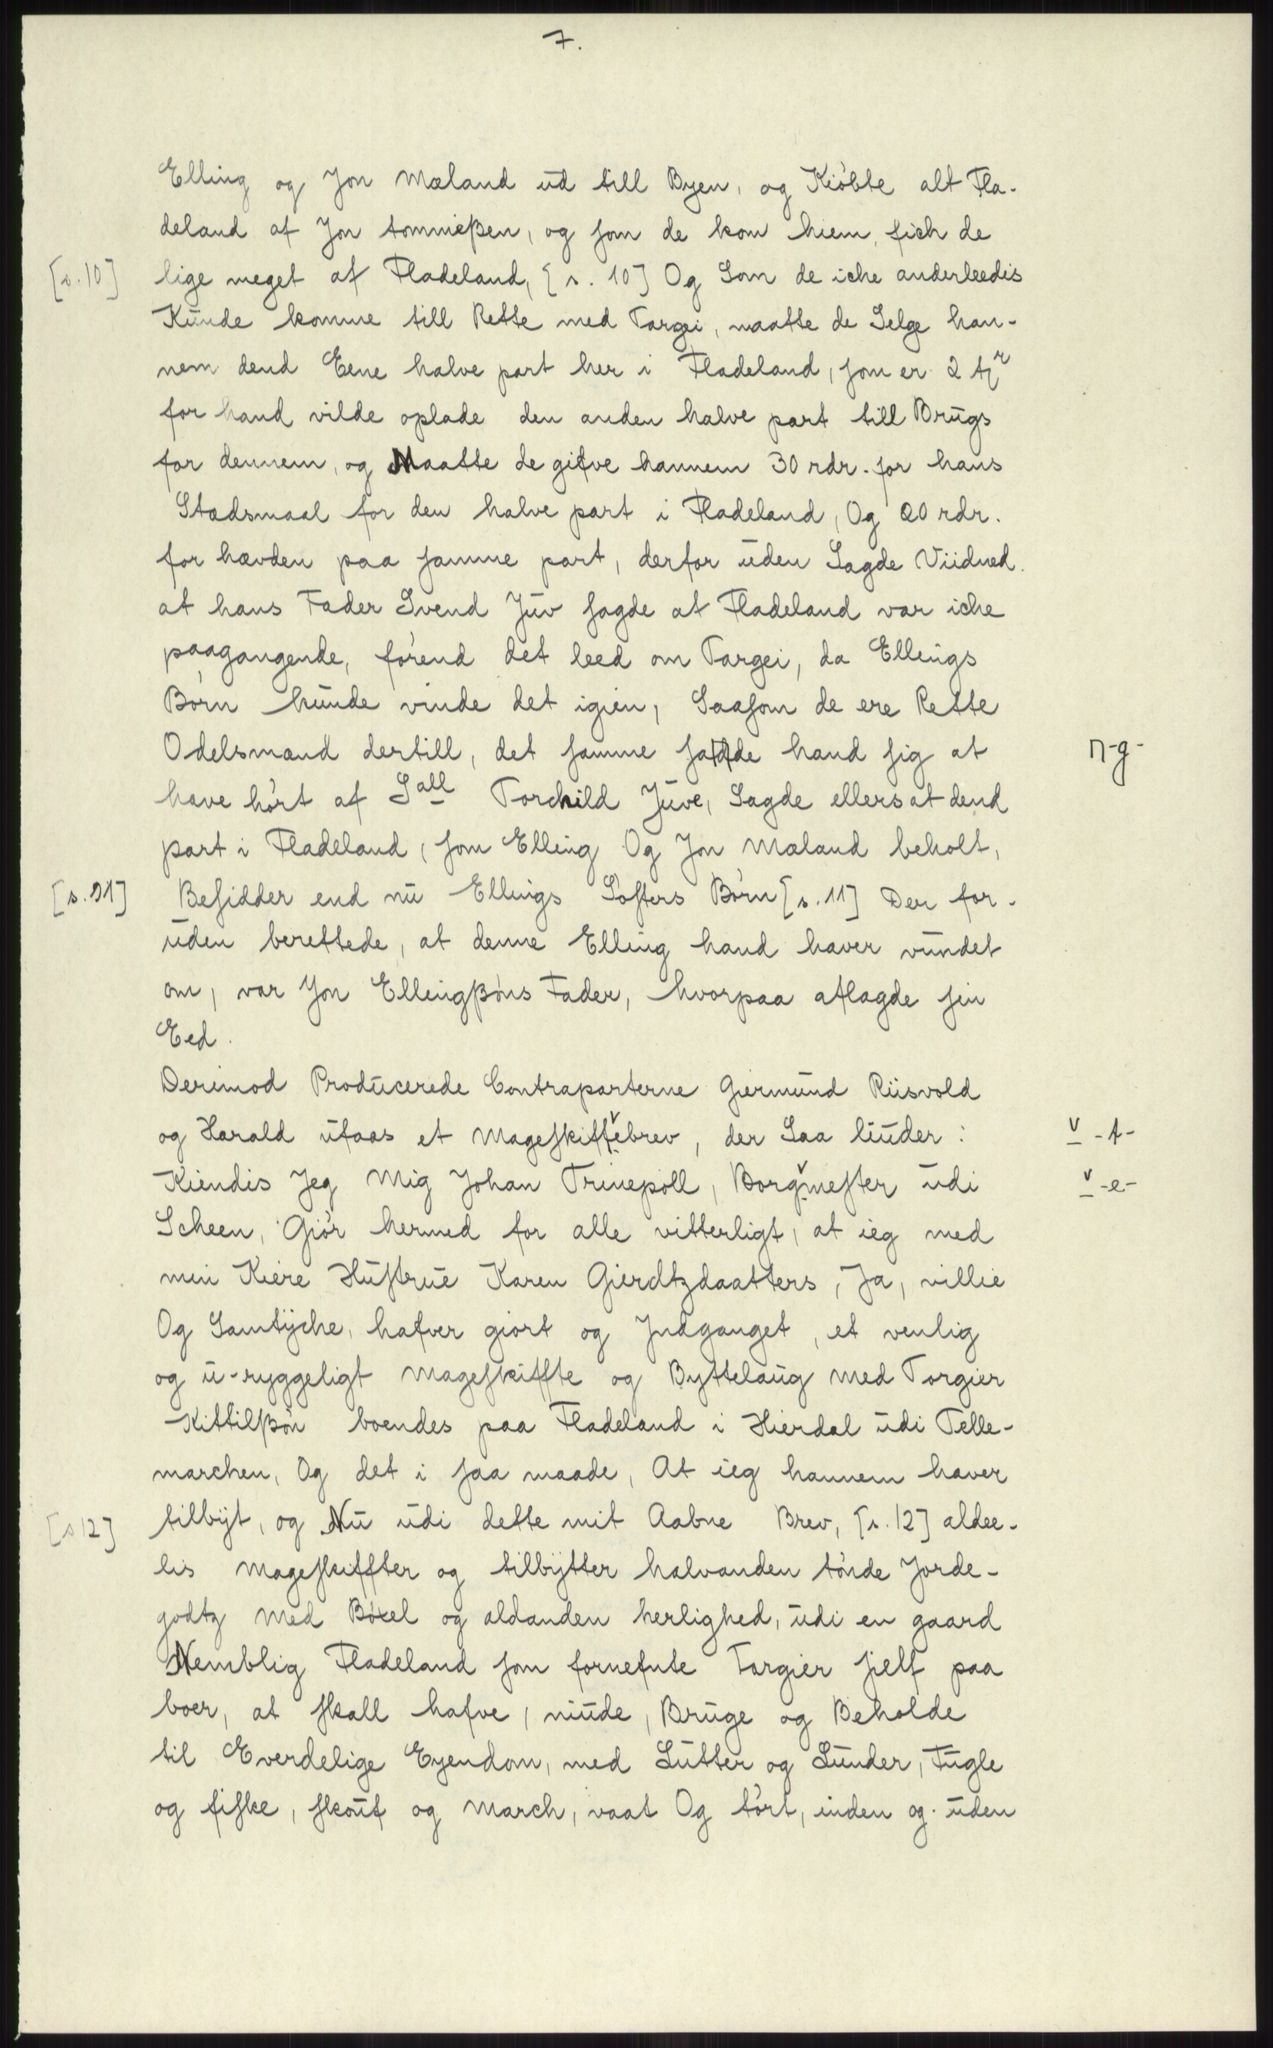 7.
Elling og Jon Mæland ud till Byen, og Kiöbte alt Fla-
deland af Jon tommeßen, og som de kom hiem, fich de
[s.10] lige meget af Fladeland, [s. 10] Og Som de iche anderleedis
Kunde komme till Rette med Targei, maatte de Selge han-
nem dend Eene halve part her i Fladeland, som er 2 tr
for hand vilde oplade den anden halve part till Brugs
for dennem, og Maatte de gifve hannem 30 rdr. for hans
Stædsmaal for den halve part i Fladeland, Og 20 rdr.
for hævden paa samme part, derfor uden Sagde Viidned.
at hans Fader Svend Juv sagde at Fladeland var iche
paagangende, førend det leed om Targei, da Ellings
Børn kunde vinde det igien, Saasom de ere Rette
Odelsmænd dertill, det samme sagde hand sig at ⊓-g-
have hørt af Sall Torchild Juve, Sagde ellers at dend
part i Fladeland, som Elling Og Jon Mæland beholt,
[s.11] Besidder end nu Ellings Søsters Børn [s. 11] Der for-
uden berettede, at denne Elling hand haver vundet
om, var Jon Ellingßöns Fader, hvorpaa aflagde sin
Eed.
Derimod Producerede Contraparterne Giermund Riisvold
og Harald ufaas et Mageskiffvebrev, der Saa liuder: v -t-
Kiendis Jeg Mig Johan Trinepoll, Borgvmester udi v -e-
Scheen, Giør hermed for alle vitterligt, at ieg med
min Kiere Hustrue Karen Gierdtzdaatters, Ja, villie
Og Samtyche, hafver giort og Indganget, et venlig
og u-ryggeligt Mageskiffte og Byttelaug med Torgier
Kittilßön boendes paa Fladeland i Hierdal udi Telle-
marchen, Og det i saa maade, At ieg hannem haver
[s 12] tilbyt, og Nu udi dette mit Aabne Brev, [s. 12] aldee-
lis Mageskiffter og tilbytter halvanden tønde Jorde-
godtz med Bøxel og aldanden herlighed, udi en gaard
Nemblig Fladeland som fornefnte Targier sielf paa
boer, at skall hafve, niude, Bruge og Beholde
til Everdelige Eyendom, med Lutter og Lunder, Fugle
og fiske, skouf og March, vaat Og tørt, inden og uden